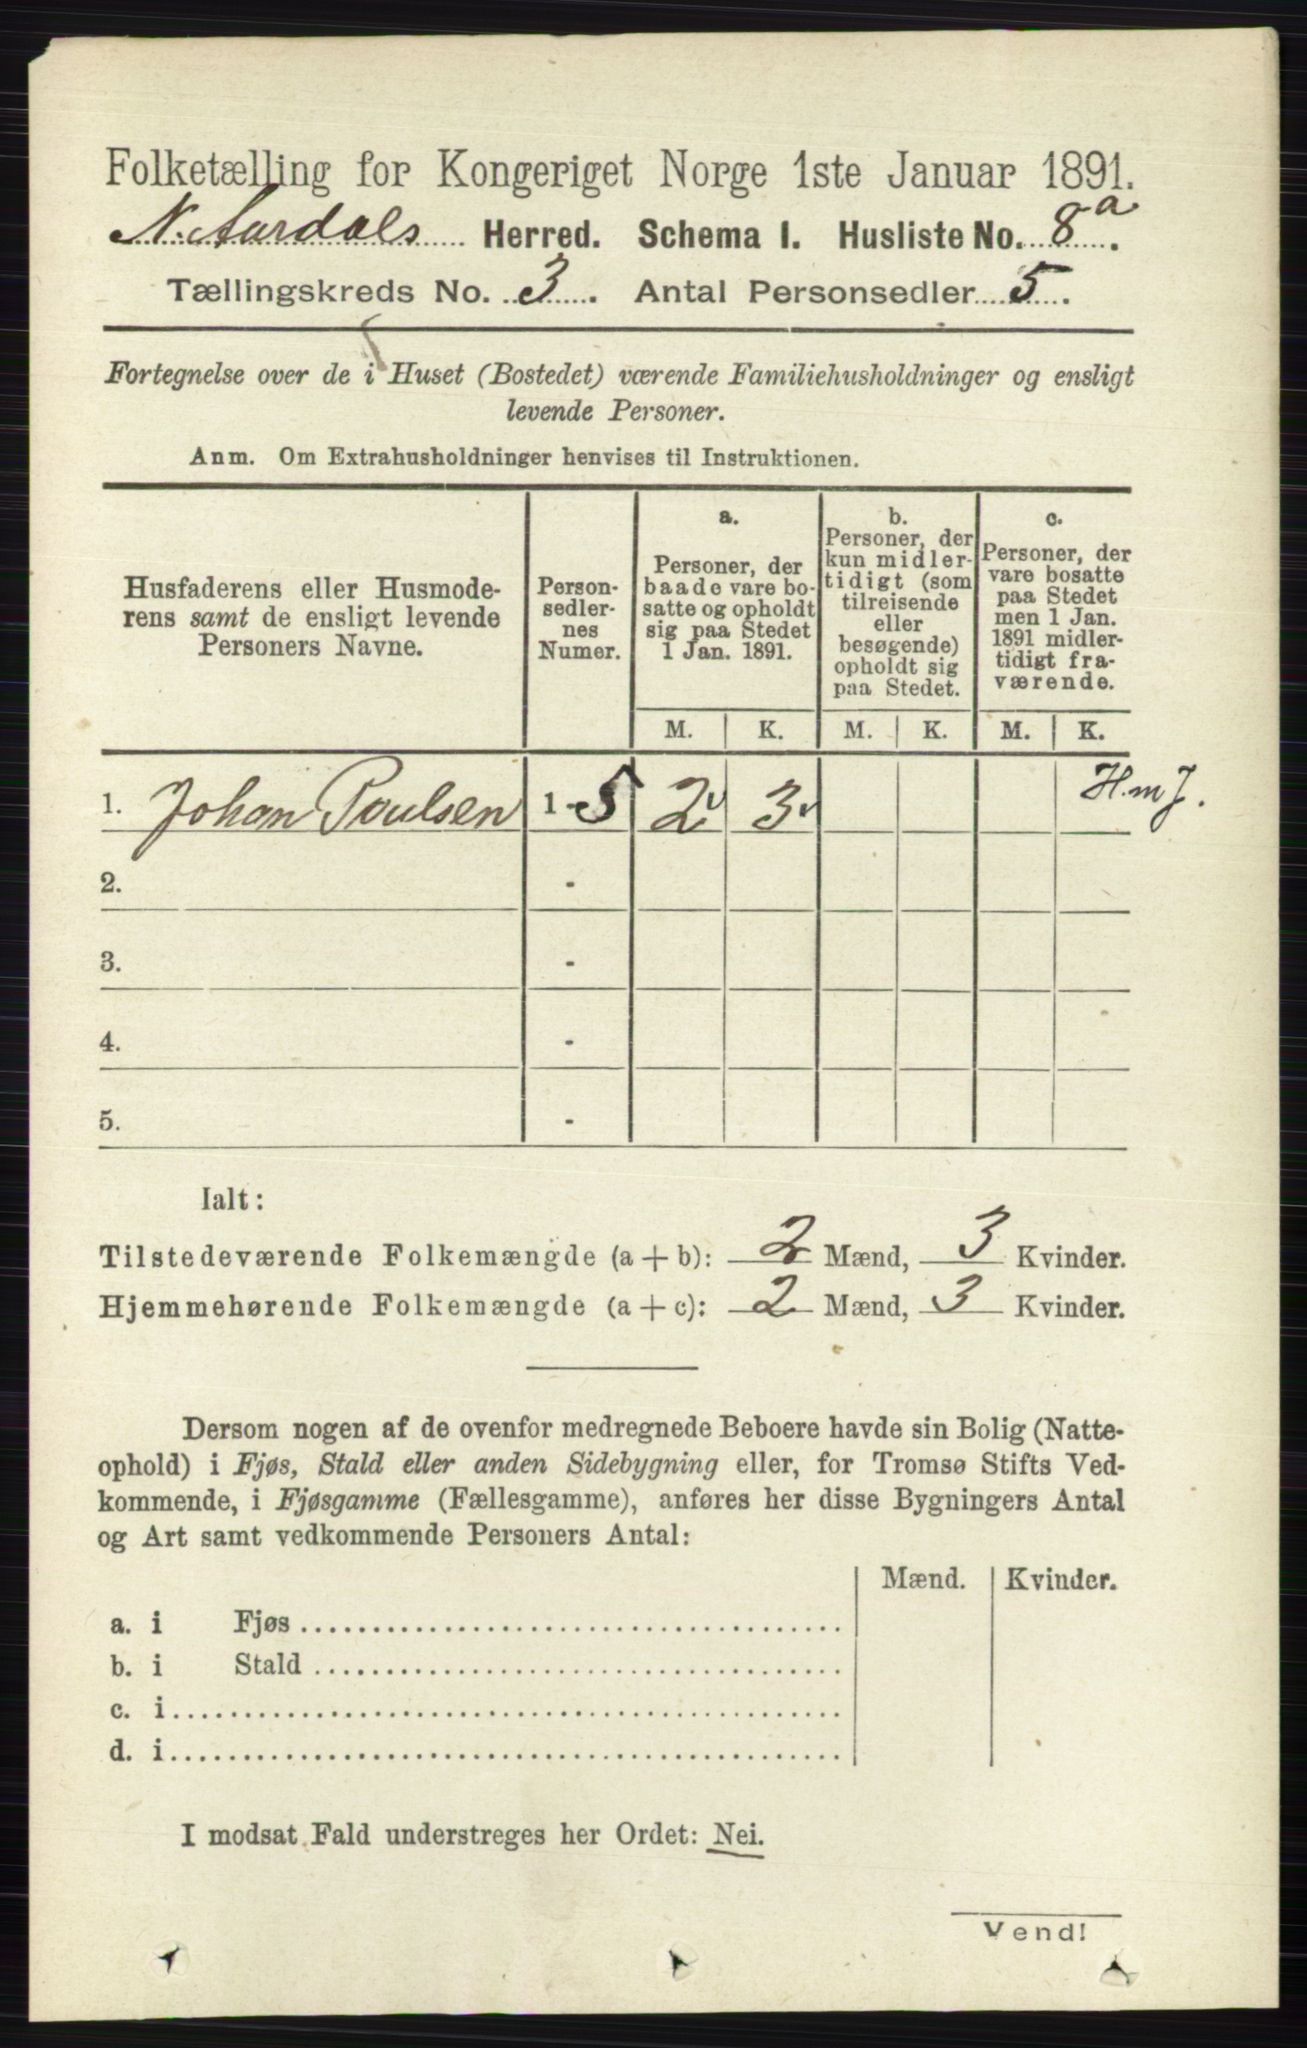 Folketælling for Kongeriget Norge 1ste Januar 1891.
N. Aurdals Herred. Schema I. Husliste No. 8a.
Tællingskreds No. 3. Antal Personsedler 5.
Fortegnelse over de i Huset (Bostedet) værende Familiehusholdninger og ensligt
levende Personer.
Anm. Om Extrahusholdninger henvises til Instruktionen.
Husfaderens eller Husmode-
rens samt de ensligt levende
Personers Navne.
Person-
sedler-
nes
Numer.
a.
Personer, der
baade vare bo-
satte og opholdt
sig paa Stedet
1 Jan. 1891.
b.
Personer, der
kun midler-
tidigt (som
tilreisende
eller
besøgende)
opholdt sig
paa Stedet.
c.
Personer, der
vare bosatte
paa Stedet
men 1 Jan.
1891 midler-
tidigt fra-
værende.
M. K. M. K. M. K.
1. Johan Poulsen 1-5 2 3 H.m J.
2. -
3. -
4. -
5. -
Ialt:
Tilstedeværende Folkemængde (a + b): 2 Mænd, 3 Kvinder.
Hjemmehørende Folkemængde (a + c): 2 Mænd, 3 Kvinder.
Dersom nogen af de ovenfor medregnede Beboere havde sin Bolig (Natte-
ophold) i Fjøs, Stald eller anden Sidebygning eller, for Tromsø Stifts Ved-
kommende, i Fjøsgamme (Fællesgamme), anføres her disse Bygningers Antal
og Art samt vedkommende Personers Antal:
Mænd. Kvinder.
a. i Fjøs
b. i Stald
c. i
d. i
I modsat Fald understreges her Ordet: Nei.
Vend!